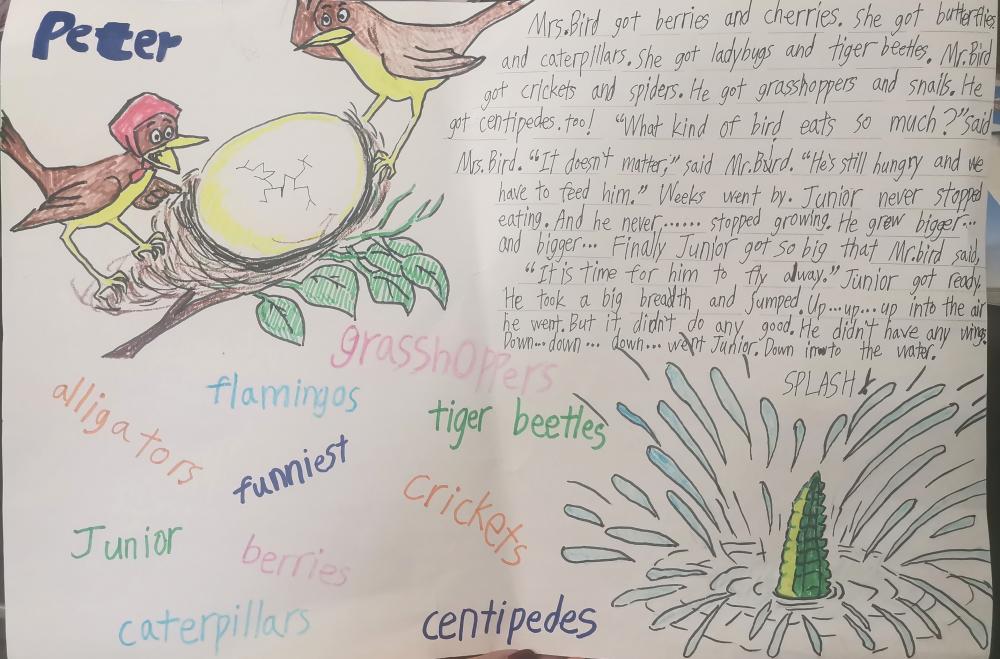 Peter
Mrs.Bird got berries and cherries. She got butterflies
and caterpillars. She got ladybugs and tiger beetles. Mr.Bird
got crickets and spiders. He got grasshoppers and snails. He
got centipedes. too! "What kind of bird eats so much?" said
Mrs.Bird. "It doesn't matter," said Mr.Bird. "He's still hungry and we
have to feed him." Weeks went by. Junior never stopped
eating. And he never...... stopped growing. He grew bigger...
and bigger... Finally Junior got so big that Mr.bird said,
"It is time for him to fly away." Junior got ready.
He took a big breadth and jumped. Up...up...up into the air
he went. But it didn't do any good. He didn't have any wings.
Down...down... down... went Junior. Down into the water!
SPLASH!
grasshoppers
flamingos
alligators
tiger beetles
funniest
crickets
Junior
berries
caterpillars
centipedes